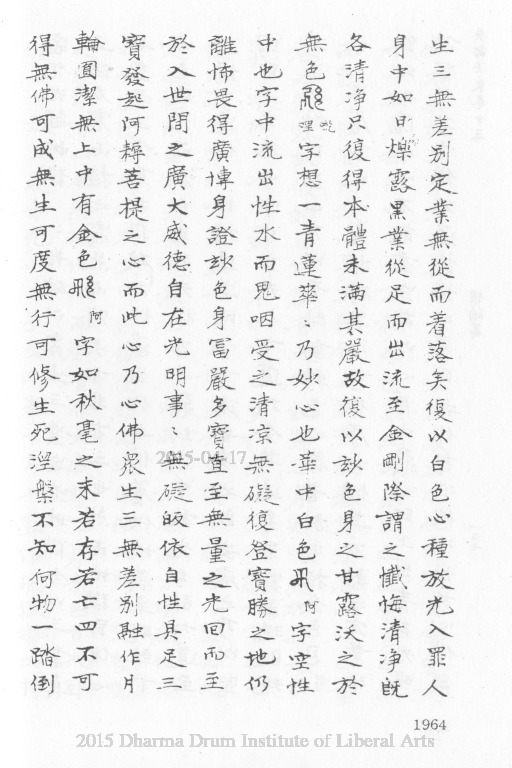 生三無差別定業無從而着落矣復以白色心種放光入罪人
身中如日爍露黑業從足而出流至金剛際謂之懺悔清净既
各清净只復得本體未滿其嚴故復以玅色身之甘露沃之於
無色 吃哩字想一青蓮華〻乃妙心也華中白色 阿字空性
中也字中流出性水而鬼咽受之清凉無礙復登寶勝之地仍
離怖畏得廣愽身證玅色身冨嚴多寶直至無量之光回而至
於入世間之廣大威德自在光明事〻無礙皈依自性具足三
寶發起阿耨菩提之心而此心乃心佛衆生三無差別融作月
輪圓潔無上中有金色 阿字如秋毫之末若存若亡四不可
得無佛可成無生可度無行可修生死涅槃不知何物一踏倒
2015-04-17
1964
2015 Dharma Drum Institute of Liberal Arts